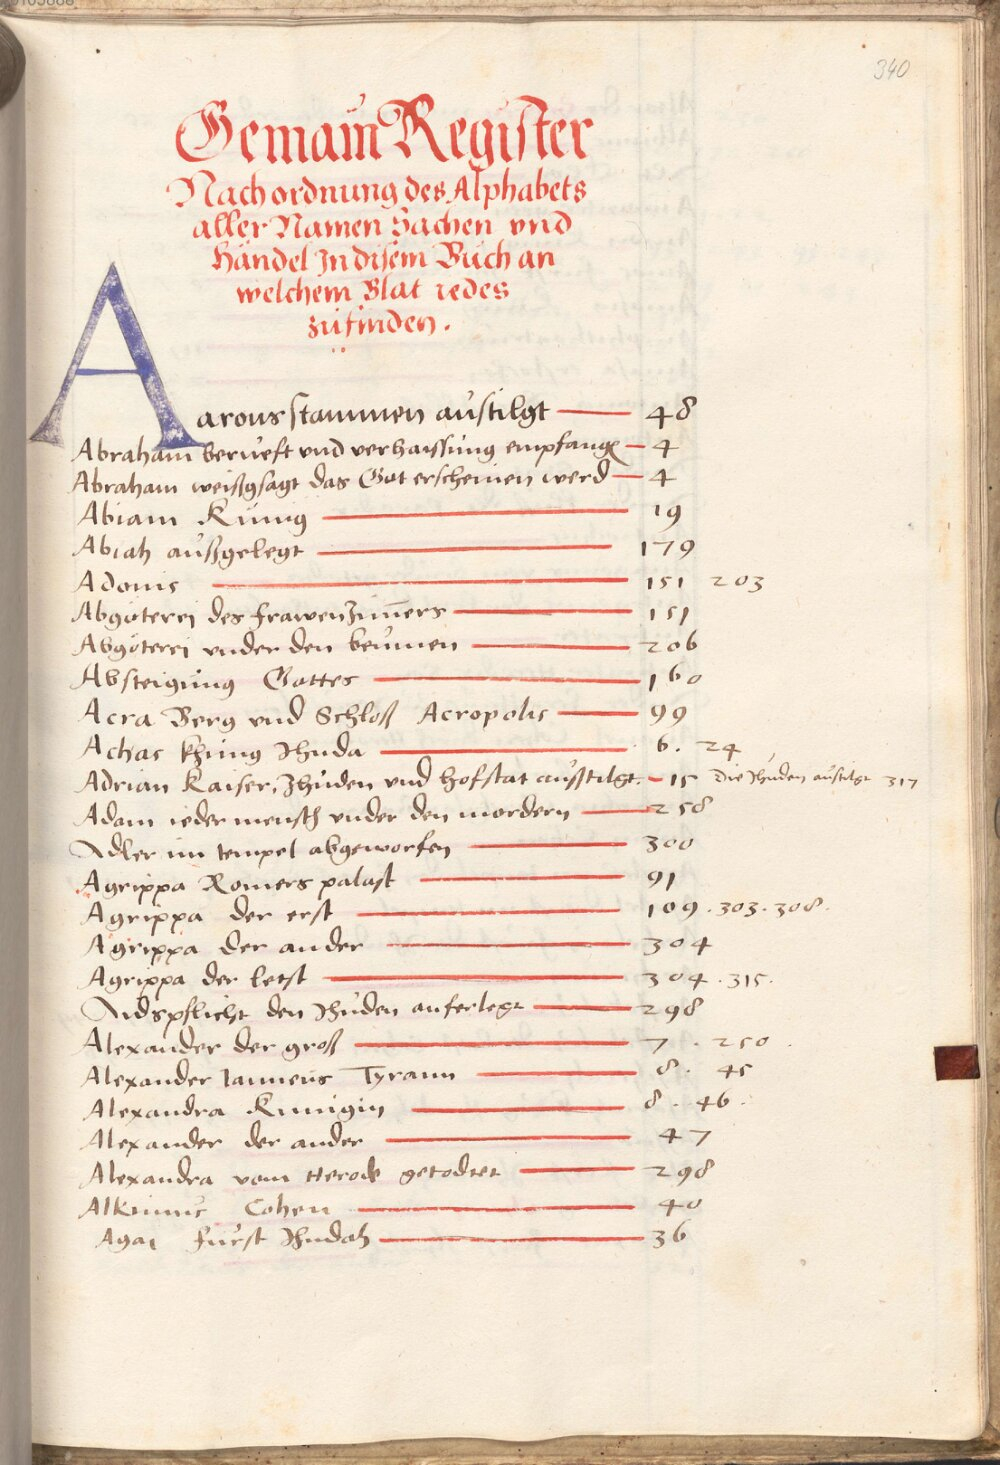 340
Gemain Register
Nach ordnung des Alphabets
aller Namen Sachen vnd
Händel In disem Buch an
welchem Blat iedes
zufinden.
Aarons stammen austilgt 48
Abraham berueft vnd verhaissung empfange 4
Abraham weissgsagt das Got erscheinen werd 4
Abiam Kunig 19
Abiah außgelegt 179
Adonis 151 203
Abgöterej des frawenzim̄ers 151
Abgöterej vnder den beumen 206
Absteigung Gottes 160
Acra Berg vnd Schloß Acropolis 99
Achas Khinig Jhuda 6. 24
Adrian Kaiser, Jhuden vnd hofstat ausstilgt. 15 Die Jhuden austilgt 317
Adam ieder mensch vnder den mordern 258
Adler im tempel abgeworfen 300
Agrippa Romers palast 91
Agrippa der erst 109. 303. 308.
Agrippa der ander 304
Agrippa der letst 304. 315.
Aidspflicht den Jhuden auferlegt 298
Alexander der groß 7. 250.
Alexander Janneus Tyrann 8. 45
Alexandra Kunigin 8. 46.
Alexander der ander 47
Alexandra vom Herode getodtet 298
Alkimus Cohen 40
furst Jhudah 36